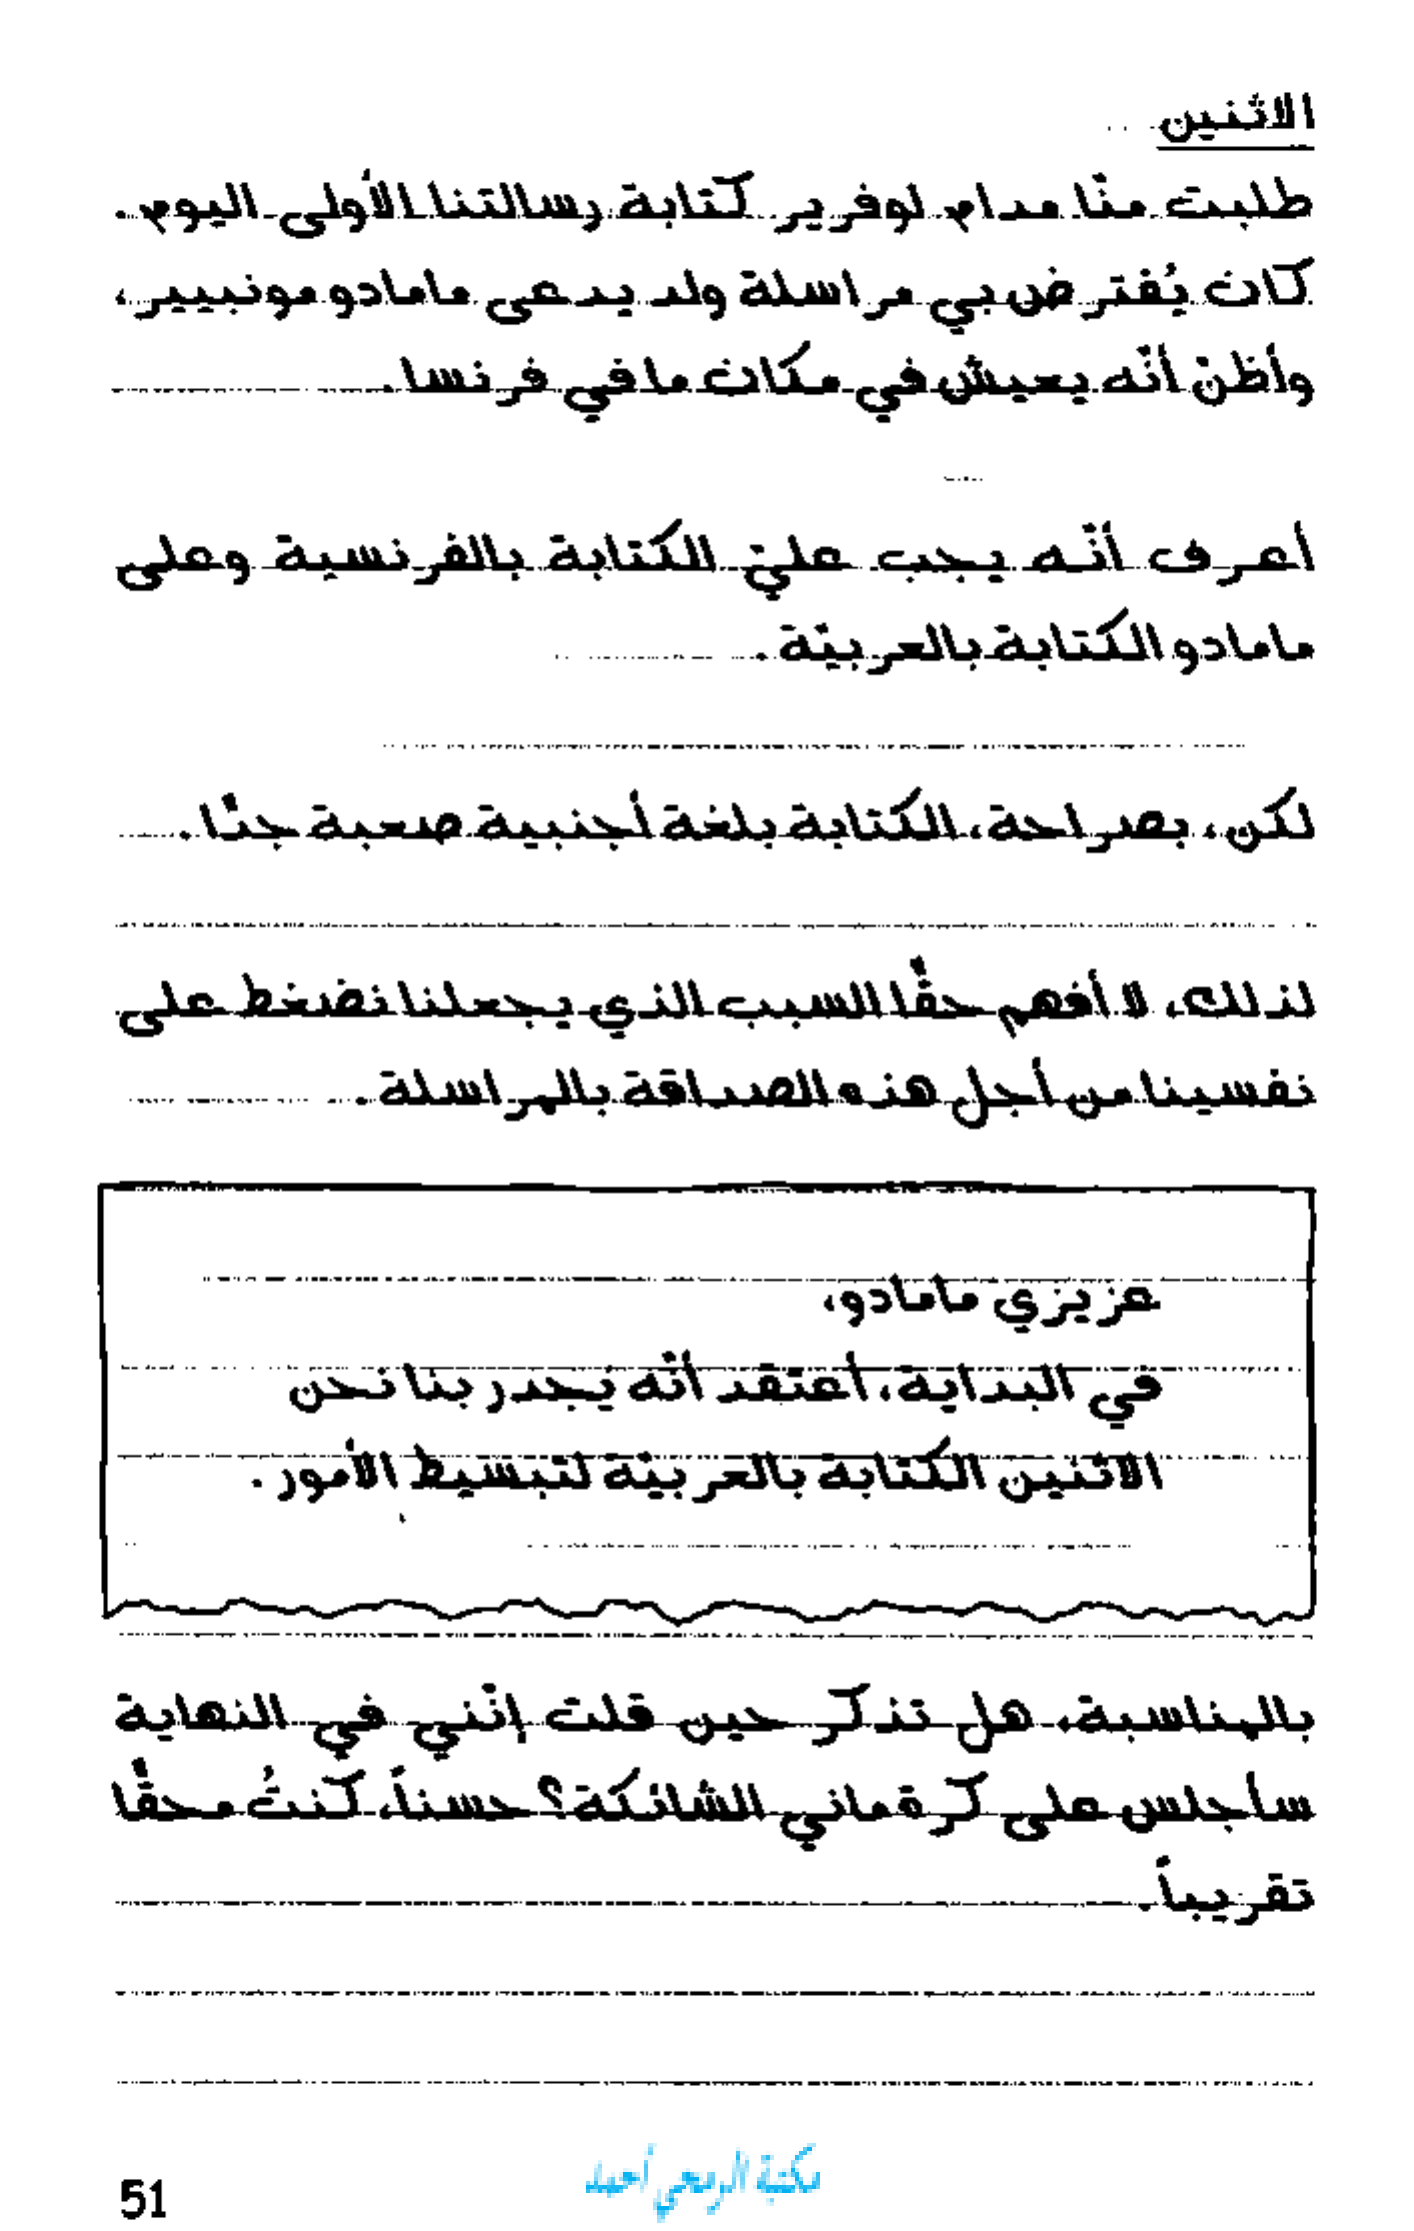 الاثنين
طلبت منّا مدام لوفرير كتابة رسالتنا الأولى اليوم.
كان يُفترض بي مراسلة ولد يدعى مامادو مونبيير،
وأظنّ أنّه يعيش في مكان ما في فرنسا.
أعرف أنّه يجب عليّ الكتابة بالفرنسية وعلى
مامادو الكتابة بالعربيّة.
لكن، بصراحة، الكتابة بلغة أجنبية صعبة جدًّا.
لذلك، لا أفهم حقًّا السبب الذي يجعلنا نضغط على
نفسينا من أجل هذه الصداقة بالمراسلة.
عزيزي مامادو،
في البداية، أعتقد أنّه يجدر بنا نحن
الاثنين الكتابة بالعربيّة لتبسيط الأمور.
بالمناسبة، هل تذكر حين قلت إنّني في النهاية
سأجلس على كرة ماني الشائكة؟ حسناً، كنتُ محقًّا
تقريباً.
مكتبة الرمحي أحمد
51